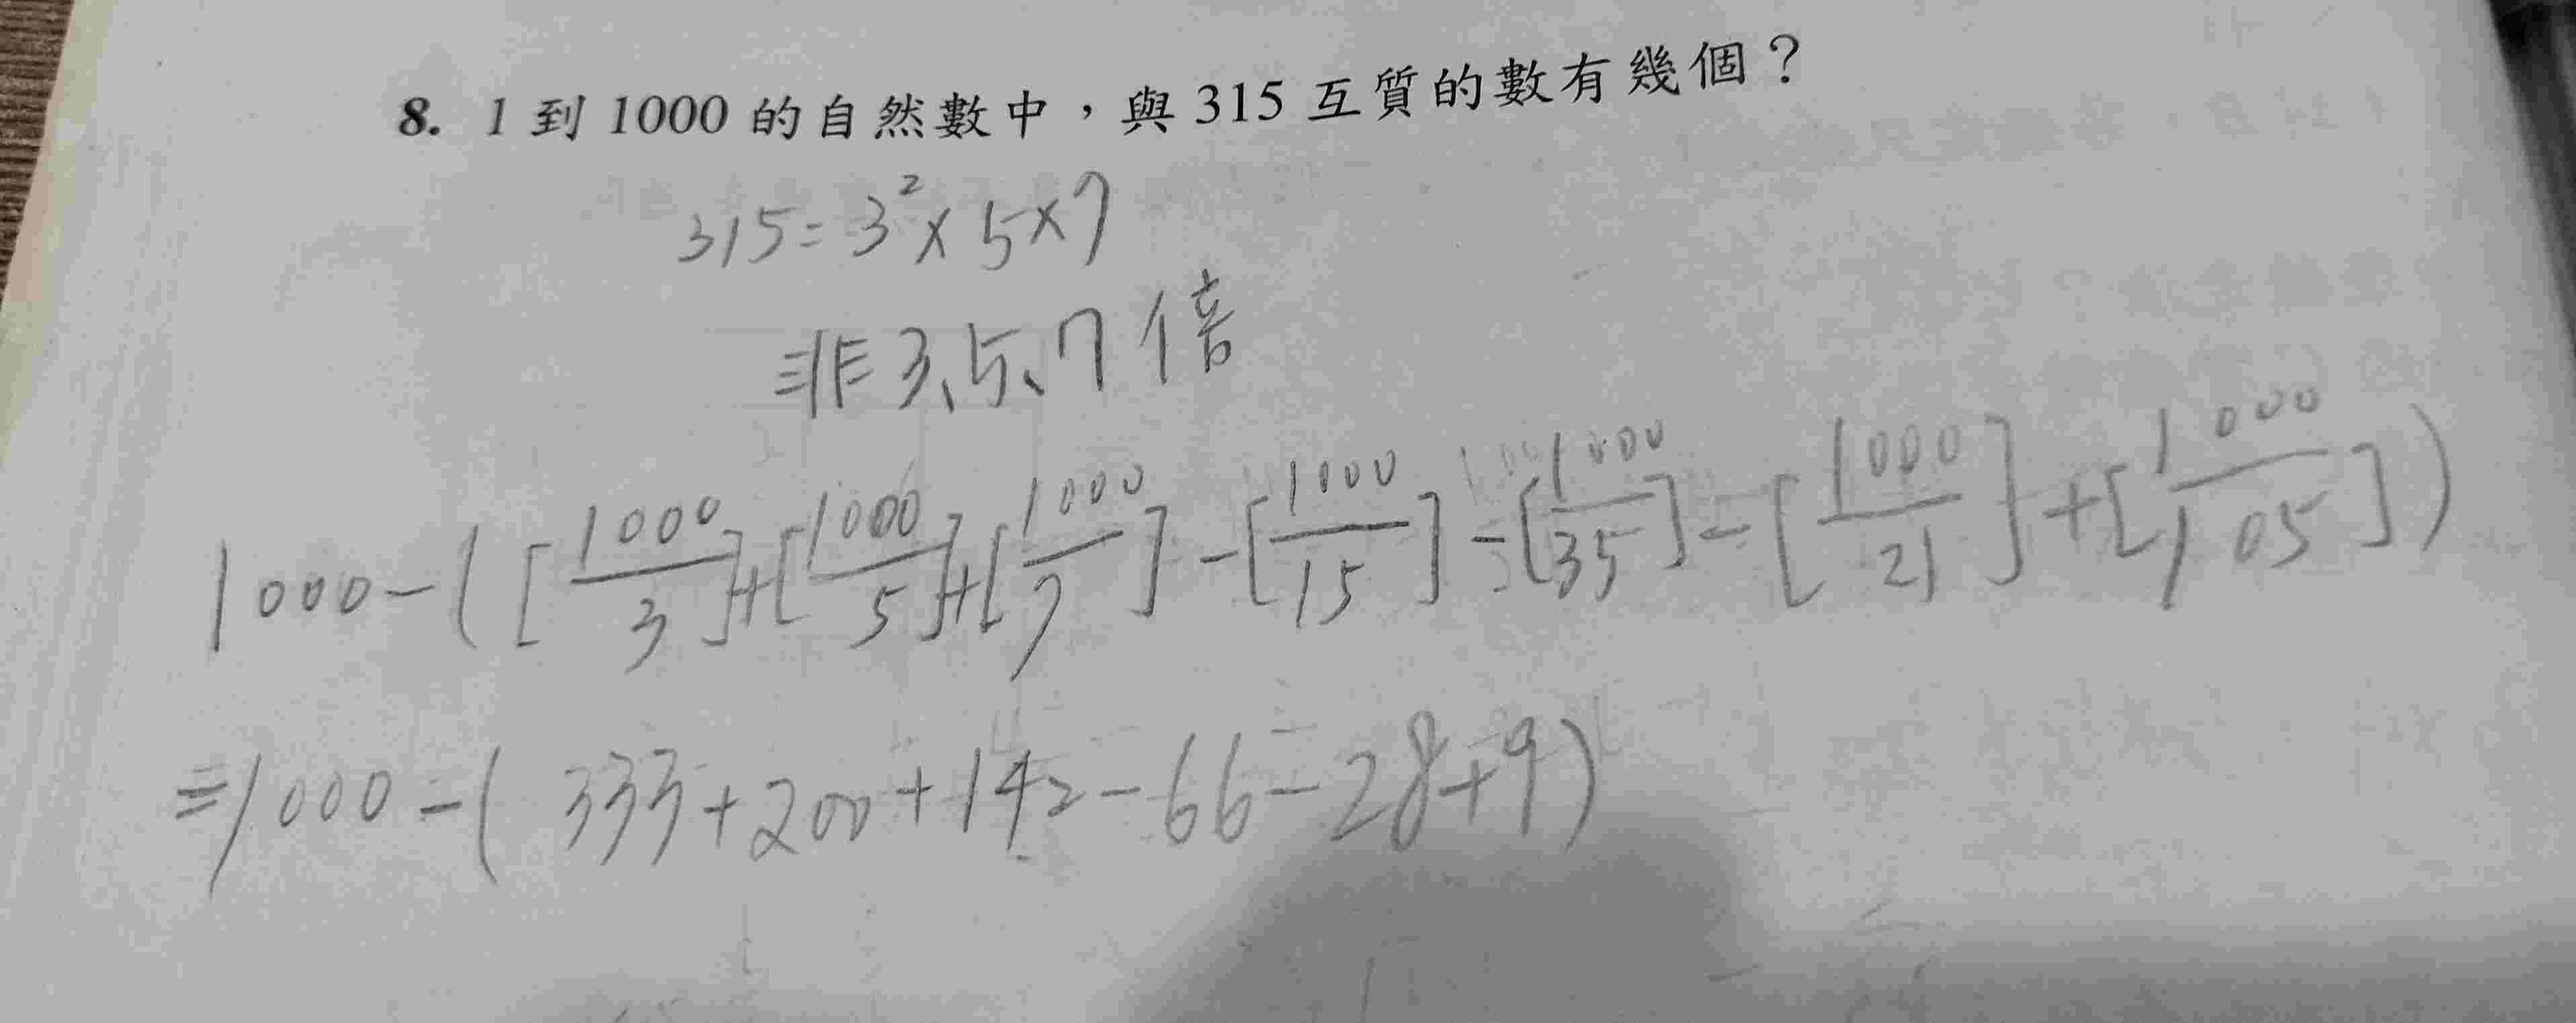 8. 1 到 1000 的自然數中，與 315 互質的數有幾個？
315=3²×5×7
非3、5、7倍
1000-([1000/3]+[1000/5]+[1000/7]-[1000/15]-[1000/35]-[1000/21]+[1000/105])
=1000-(333+200+142-66-28+9)